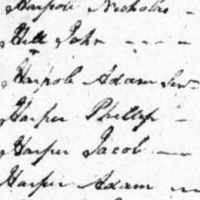 Harpole Nicholas -
Hill John - - -
Harpole Adam Senr
Harper Phillip -
Harper Jacob -
Harper Adam -